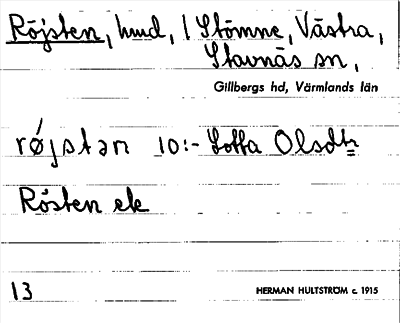 Röjsten, hmd, 1 Stömne, Västra,
Stavnäs sn,
Gillbergs hd, Värmlands län
røjstan 10:- Lotta Olsdtr
Rösten ek
13
HERMAN HULTSTRÖM c. 1915